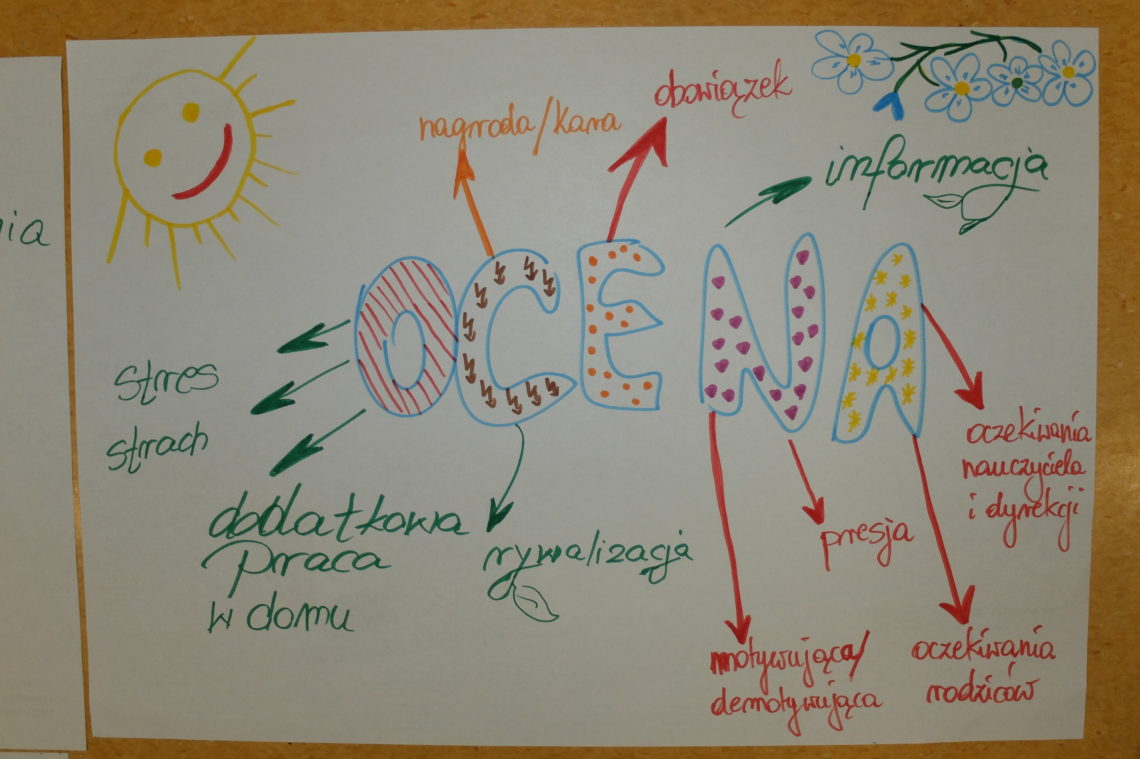 nia
nagroda/kara
obowiązek
informacja
OCENA
stres
strach
dodatkowa
praca
w domu
rywalizacja
presja
oczekiwania
nauczyciela
i dyrekcji
motywująca/
demotywująca
oczekiwania
rodziców